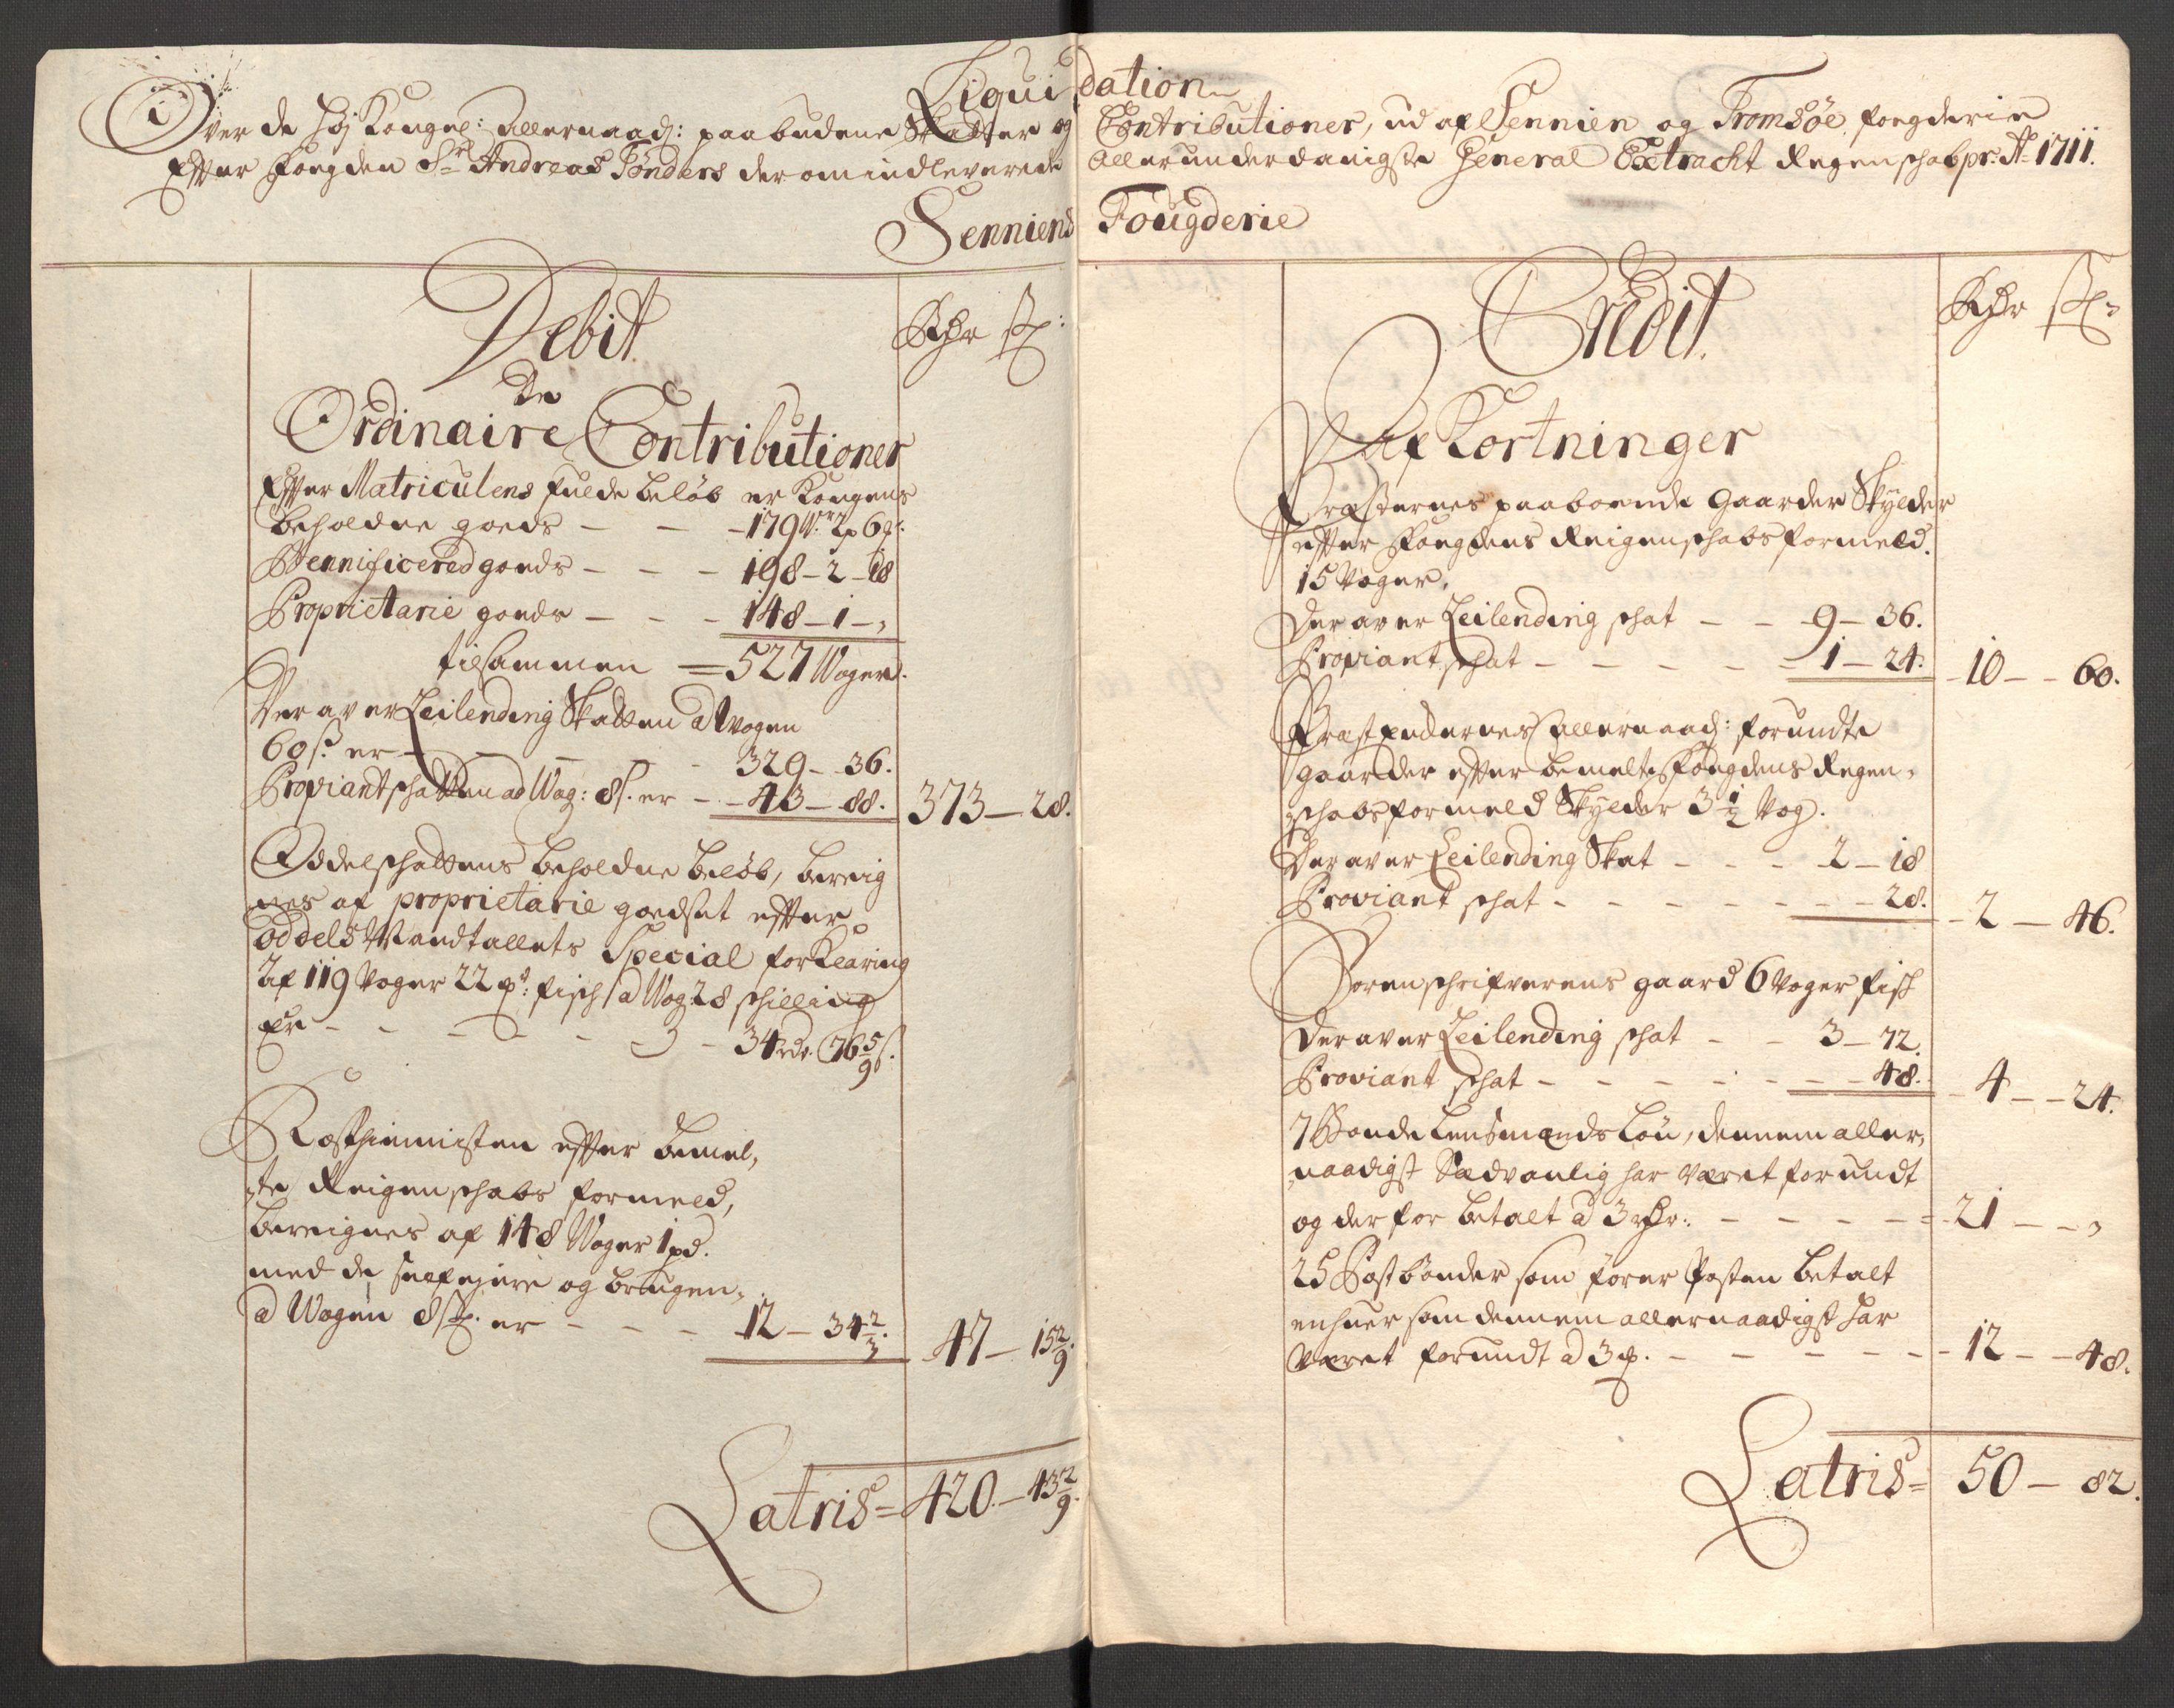 Liquidation
Over de høj Kongel: allernaad: paabudene Skatter og Contributioner, ud af Sennien og Tromsøe fougderie
Efter fougden Sr Andreas Tønders derom indleverede allerunderdanigste General Extracht Regenschab pr: Ao 1711.
Senniens Fougderie
Debit
Rdr s:
De
Ordinaire Contributioner
Efter Matriculens fulde beløb er Kongens
beholdne goeds - - - 179 W: 2 p 6 m:
Bennificered goeds - - - 198 - 2 - 18
Proprietarie goeds - - - 148 - 1 - "
tilsammen = 527 Woger.
Der av er Leilending Skatten a Wogen
60 s. er - - - 329 - 36.
Proviant schatten ad Wog: 8 s. er - - 43 - 88. 373 - 28.
Oddelschattens beholdne beløb, bereig
nes af proprietarie goedset efter
oddels Mandtallets Special forklaring
af 119 Woger 22 p: fisch a Wog 28 schilling
Er - - - 34 rdr. 76 5/9 s.
Rosthiennisten efter bemel,
te Reigenschabs formeld,
bereignes af 148 Woger 1 pd.
med de selfejere og brugen,
a Wogen 8 s. er - - - 12 - 34 2/3. 47 - 15 2/9.
Latris = 420 - 43 2/9.
Credit.
Rdr s:
Af Kortninger
Præsternes paaboende Gaarder Skylder
efter Fougdens Reigenschabs formeld.
15 Woger.
Der av er Leilending schat - - 9 - 36.
Proviant schat - - - - - 1 - 24. 10 - - 60.
Præst Enckernes allernaad: forundte
gaarder efter bemelte Fougdens Regen,
schabs formeld Skylder 3 1/2 Wog.
Der av er Leilending Skat - - - 2 - 18
Proviant schat - - - - - - - 28. 2 - 46.
Sorenschrifverens gaard 6 Woger fisch
Der av er Leilending schat - - 3 - 72.
Proviant schat - - - - - - - 48. 4 - - 24.
7 Bonde Lensmænds Løn, dennem aller,
naadigst Sædvanlig har været forundt
og der for betalt a 3 rdr: - - - - - 21 - - "
25 Postbønder som fører Posten betalt
enhver som dennem allernaadigst har
været forundt a 3 m. - - - - - - 12 - - 48.
Latris = 50 - 82.